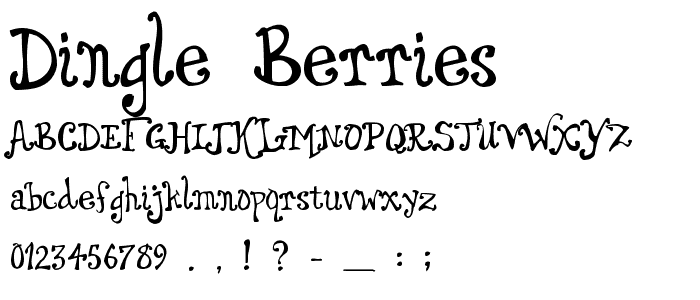 Dingle Berries
ABCDEFGHIJKLMNOPQRSTUVWXYZ
abcdefghijklmnopqrstuvwxyz
0123456789 . , ! ? - _ : ;